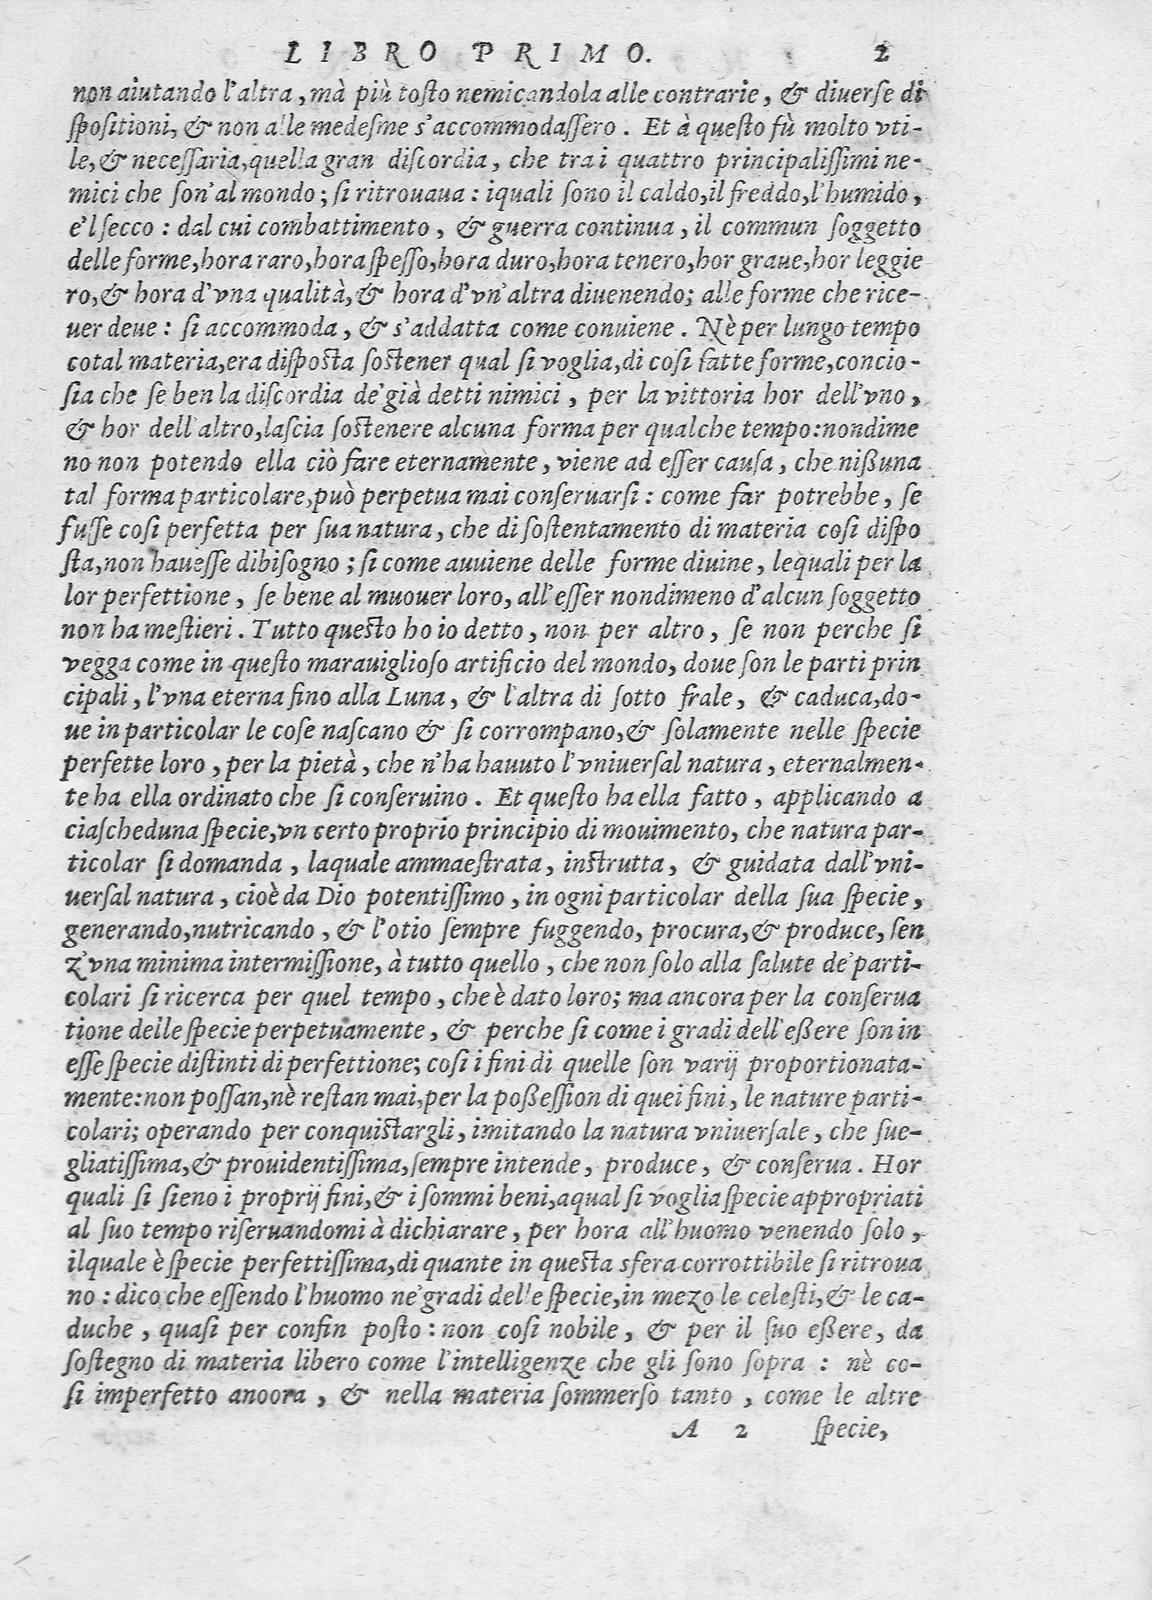 LIBRO PRIMO. 2
non aiutando l'altra, mà più tosto nemicandola alle contrarie, & diuerse di
spositioni, & non alle medesme s'accommodassero. Et à questo fù molto vti-
le, & necessaria, quella gran discordia, che tra i quattro principalissimi ne-
mici che son' al mondo; si ritrouaua: iquali sono il caldo, il freddo, l'humido,
e'l secco: dal cui combattimento, & guerra continua, il commun soggetto
delle forme, hora raro, hora spesso, hora duro, hora tenero, hor graue, hor leggie
ro, & hora d'vna qualità, & hora d'vn'altra diuenendo; alle forme che rice-
uer deue: si accommoda, & s'addatta come conuiene. Nè per lungo tempo
cotal materia, era disposta sostener qual si voglia, di cosi fatte forme, concio-
sia che se ben la discordia de' già detti nimici, per la vittoria hor dell'vno,
& hor dell'altro, lascia sostenere alcuna forma per qualche tempo: nondime
no non potendo ella ciò fare eternamente, viene ad esser causa, che nißuna
tal forma particolare, può perpetua mai conseruarsi: come far potrebbe, se
fusse cosi perfetta per sua natura, che di sostentamento di materia cosi dispo
sta, non hauesse dibisogno; si come auuiene delle forme diuine, lequali per la
lor perfettione, se bene al muouer loro, all'esser nondimeno d'alcun soggetto
non ha mestieri. Tutto questo ho io detto, non per altro, se non perche si
vegga come in questo marauiglioso artificio del mondo, doue son le parti prin
cipali, l'vna eterna fino alla Luna, & l'altra di sotto frale, & caduca, do-
ue in particolar le cose nascano & si corrompano, & solamente nelle specie
perfette loro, per la pietà, che n'ha hauuto l'vniuersal natura, eternalmen-
te ha ella ordinato che si conseruino. Et questo ha ella fatto, applicando a
ciascheduna specie, vn certo proprio principio di mouimento, che natura par-
ticolar si domanda, laquale ammaestrata, instrutta, & guidata dall'vni-
uersal natura, cioè da Dio potentissimo, in ogni particolar della sua specie,
generando, nutricando, & l'otio sempre fuggendo, procura, & produce, sen
z'vna minima intermissione, à tutto quello, che non solo alla salute de' parti-
colari si ricerca per quel tempo, che è dato loro; ma ancora per la conserua
tione delle specie perpetuamente, & perche si come i gradi dell'eßere son in
esse specie distinti di perfettione; cosi i fini di quelle son varij proportionata-
mente: non possan, nè restan mai, per la poßession di quei fini, le nature parti-
colari; operando per conquistargli, imitando la natura vniuersale, che sue-
gliatissima, & prouidentissima, sempre intende, produce, & conserua. Hor
quali si sieno i proprij fini, & i sommi beni, a qual si voglia specie appropriati
al suo tempo riseruandomi à dichiarare, per hora all'huomo venendo solo,
ilquale è specie perfettissima, di quante in questa sfera corrottibile si ritroua
no: dico che essendo l'huomo ne' gradi delle specie, in mezo le celesti, & le ca-
duche, quasi per confin posto: non cosi nobile, & per il suo eßere, da
sostegno di materia libero come l'intelligenze che gli sono sopra: nè co-
si imperfetto anoora, & nella materia sommerso tanto, come le altre
A 2 specie,